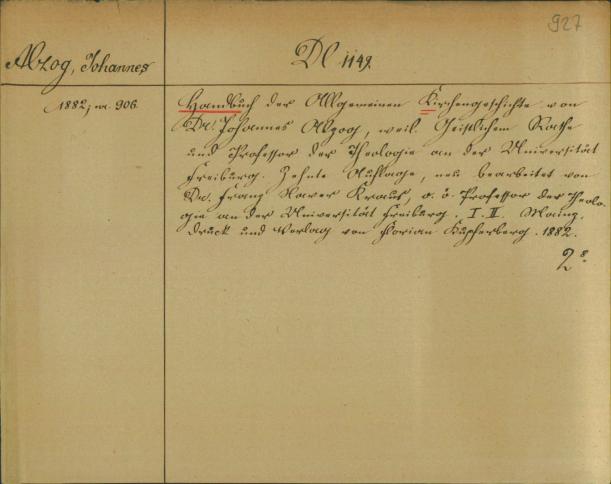 927
Alzog, Johannes
Dl 1149.
1882; nr. 906.
Handbuch der Allgemeinen Kirchengeschichte von
Dr. Johannes Alzog, weil. Geistlichem Rathe
und Professor der Theologie an der Universität
Freiburg. Zehnte Auflage, neu bearbeitet von
Dr. Franz Xaver Kraus, o. ö. Professor der Theolo-
gie an der Universität Freiburg. I. II. Mainz.
Druck und Verlag von Florian Kupferberg. 1882.
2 8°